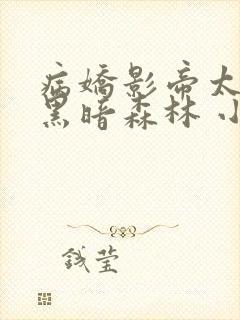 病嬌影帝太
黑暗森林 小
钱莹